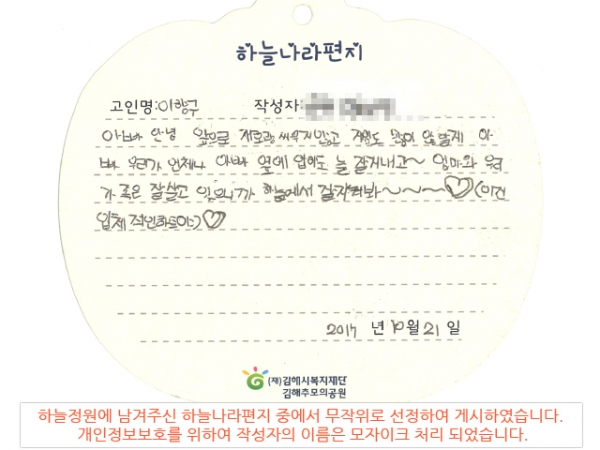 하늘나라편지
고인명:이향구 작성자:
아빠 안녕 앞으로 저로랑 싸우지않고 걱정도 많이 않할게 아
빠 우리가 언제나 아빠 옆에 없어도 늘 잘지내고~ 엄마와 우리
가족은 잘살고 있으니까 하늘에서 잘지켜봐~~~~♡(이건
입체적인하트야:)♡
2017 년 10월 21 일
(재)김해시복지재단
김해추모의공원
하늘정원에 남겨주신 하늘나라편지 중에서 무작위로 선정하여 게시하였습니다.
개인정보보호를 위하여 작성자의 이름은 모자이크 처리 되었습니다.